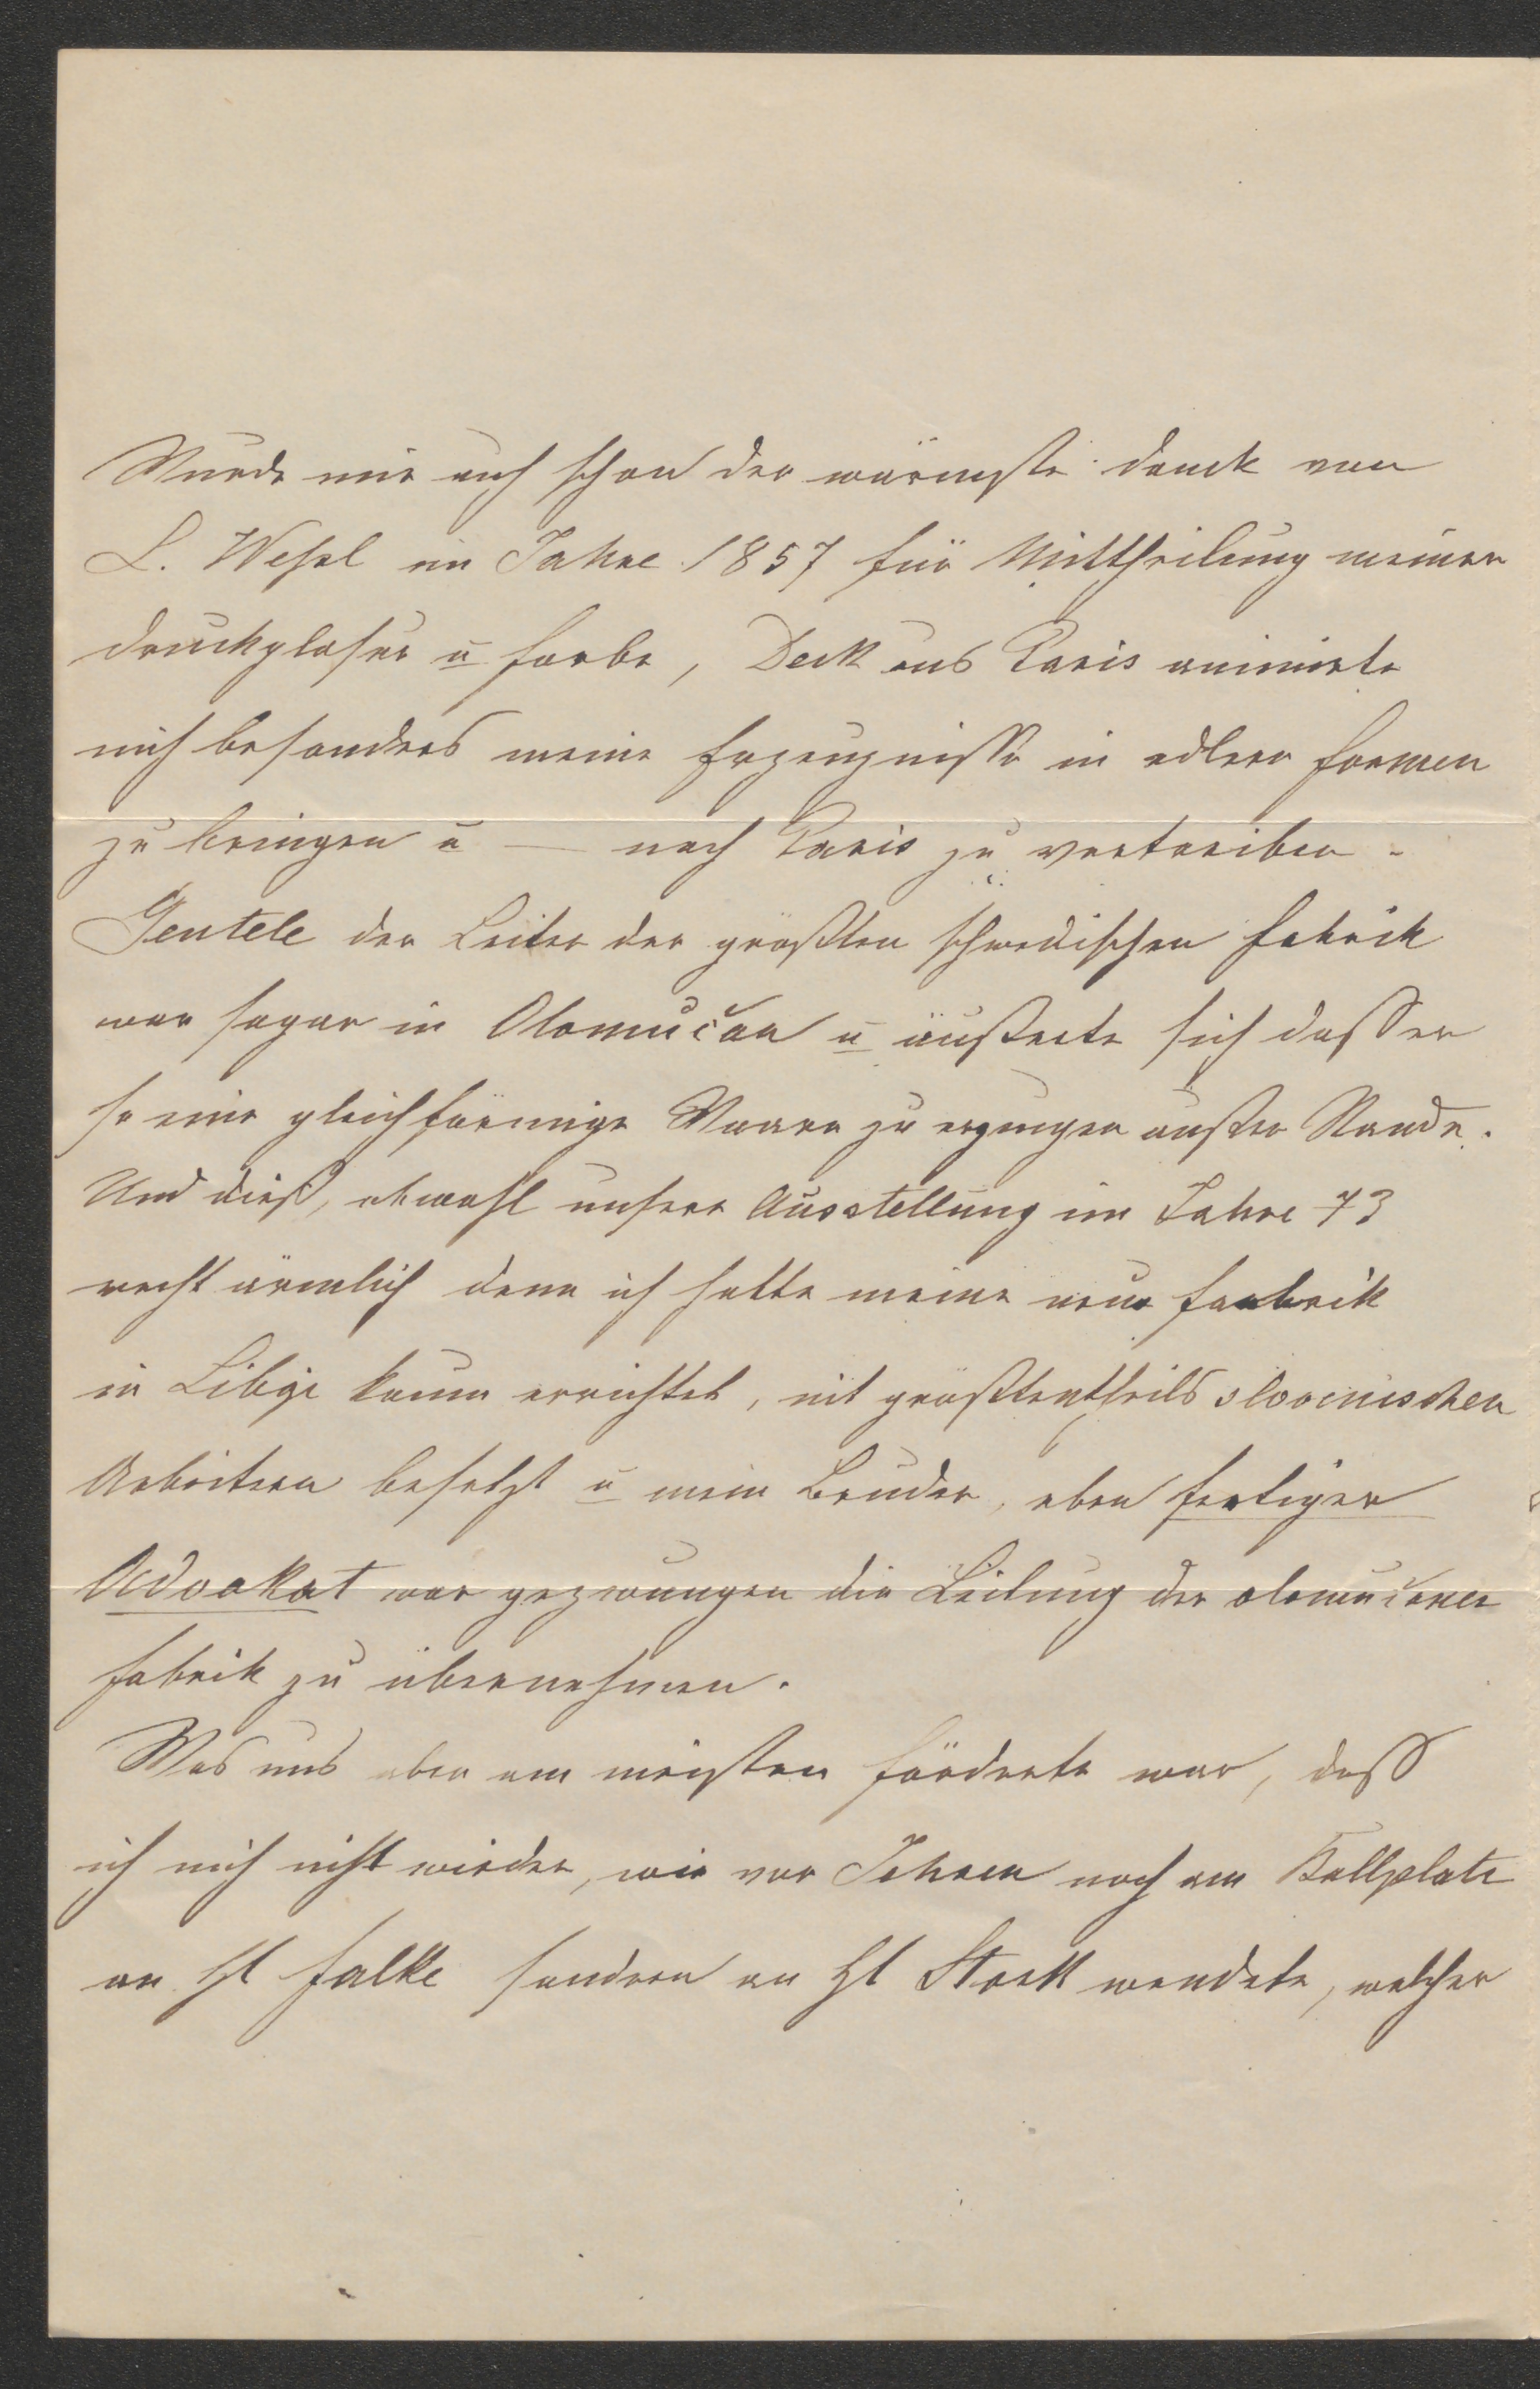 Wurde mir auch schon der wärmste Dank von
L. Wessel im Jahre 1857 für Mittheilung meiner
Druckglasur u Farbe, Deck aus Paris animirte
mich besonders meine Erzeugnisse in edlere Formen
zu bringen u — nach Paris zu vertreiben.
Gentele der Leiter der größten schwedischen Fabrik
war sogar in Olomučan u äußerte sich dass er
so eine gleichförmige Waare zu erzeugen außer Stande.
Und dieß, obwohl unsere Ausstellung im Jahre 73
recht ärmlich denn ich hatte meine neue Fabrik
in Liboje kaum errichtet, mit größtentheils slovenischen
Arbeitern besetzt u mein Bruder, eben fertiger
Advokat war gezwungen die Leitung der olomučaner
Fabrik zu übernehmen.
Was uns aber am meisten förderte war, dass
ich mich nicht wieder, wie vor Jahren noch am Ballplatz
an H Falke sondern an H Storck wendete, welcher